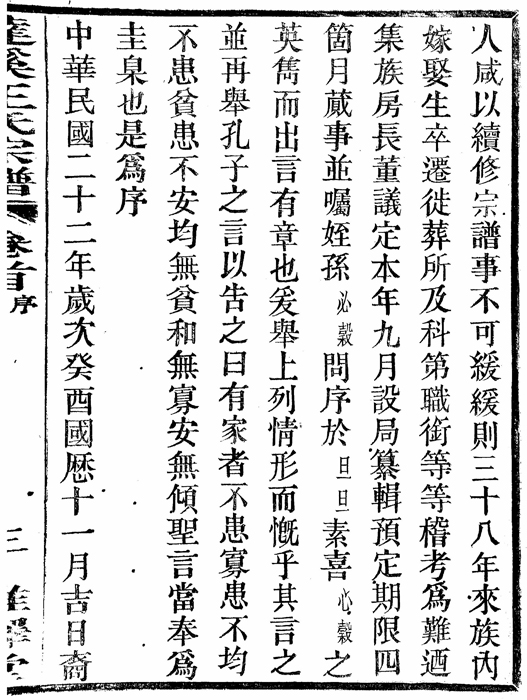 人咸以續修宗譜事不可緩緩則三十八年來族內
嫁娶生卒遷徙葬所及科第職銜等等稽考爲難迺
集族房長董議定本年九月設局纂輯預定期限四
箇月蕆事並囑姪孫必穀問序於旦旦素喜必穀之
英雋而出言有章也爰舉上列情形而慨乎其言之
並再舉孔子之言以告之曰有家者不患寡患不均
不患貧患不安均無貧和無寡安無傾聖言當奉爲
圭臬也是爲序
中華民國二十二年歲次癸酉國厯十一月吉日裔
王氏宗譜 卷首 序 三